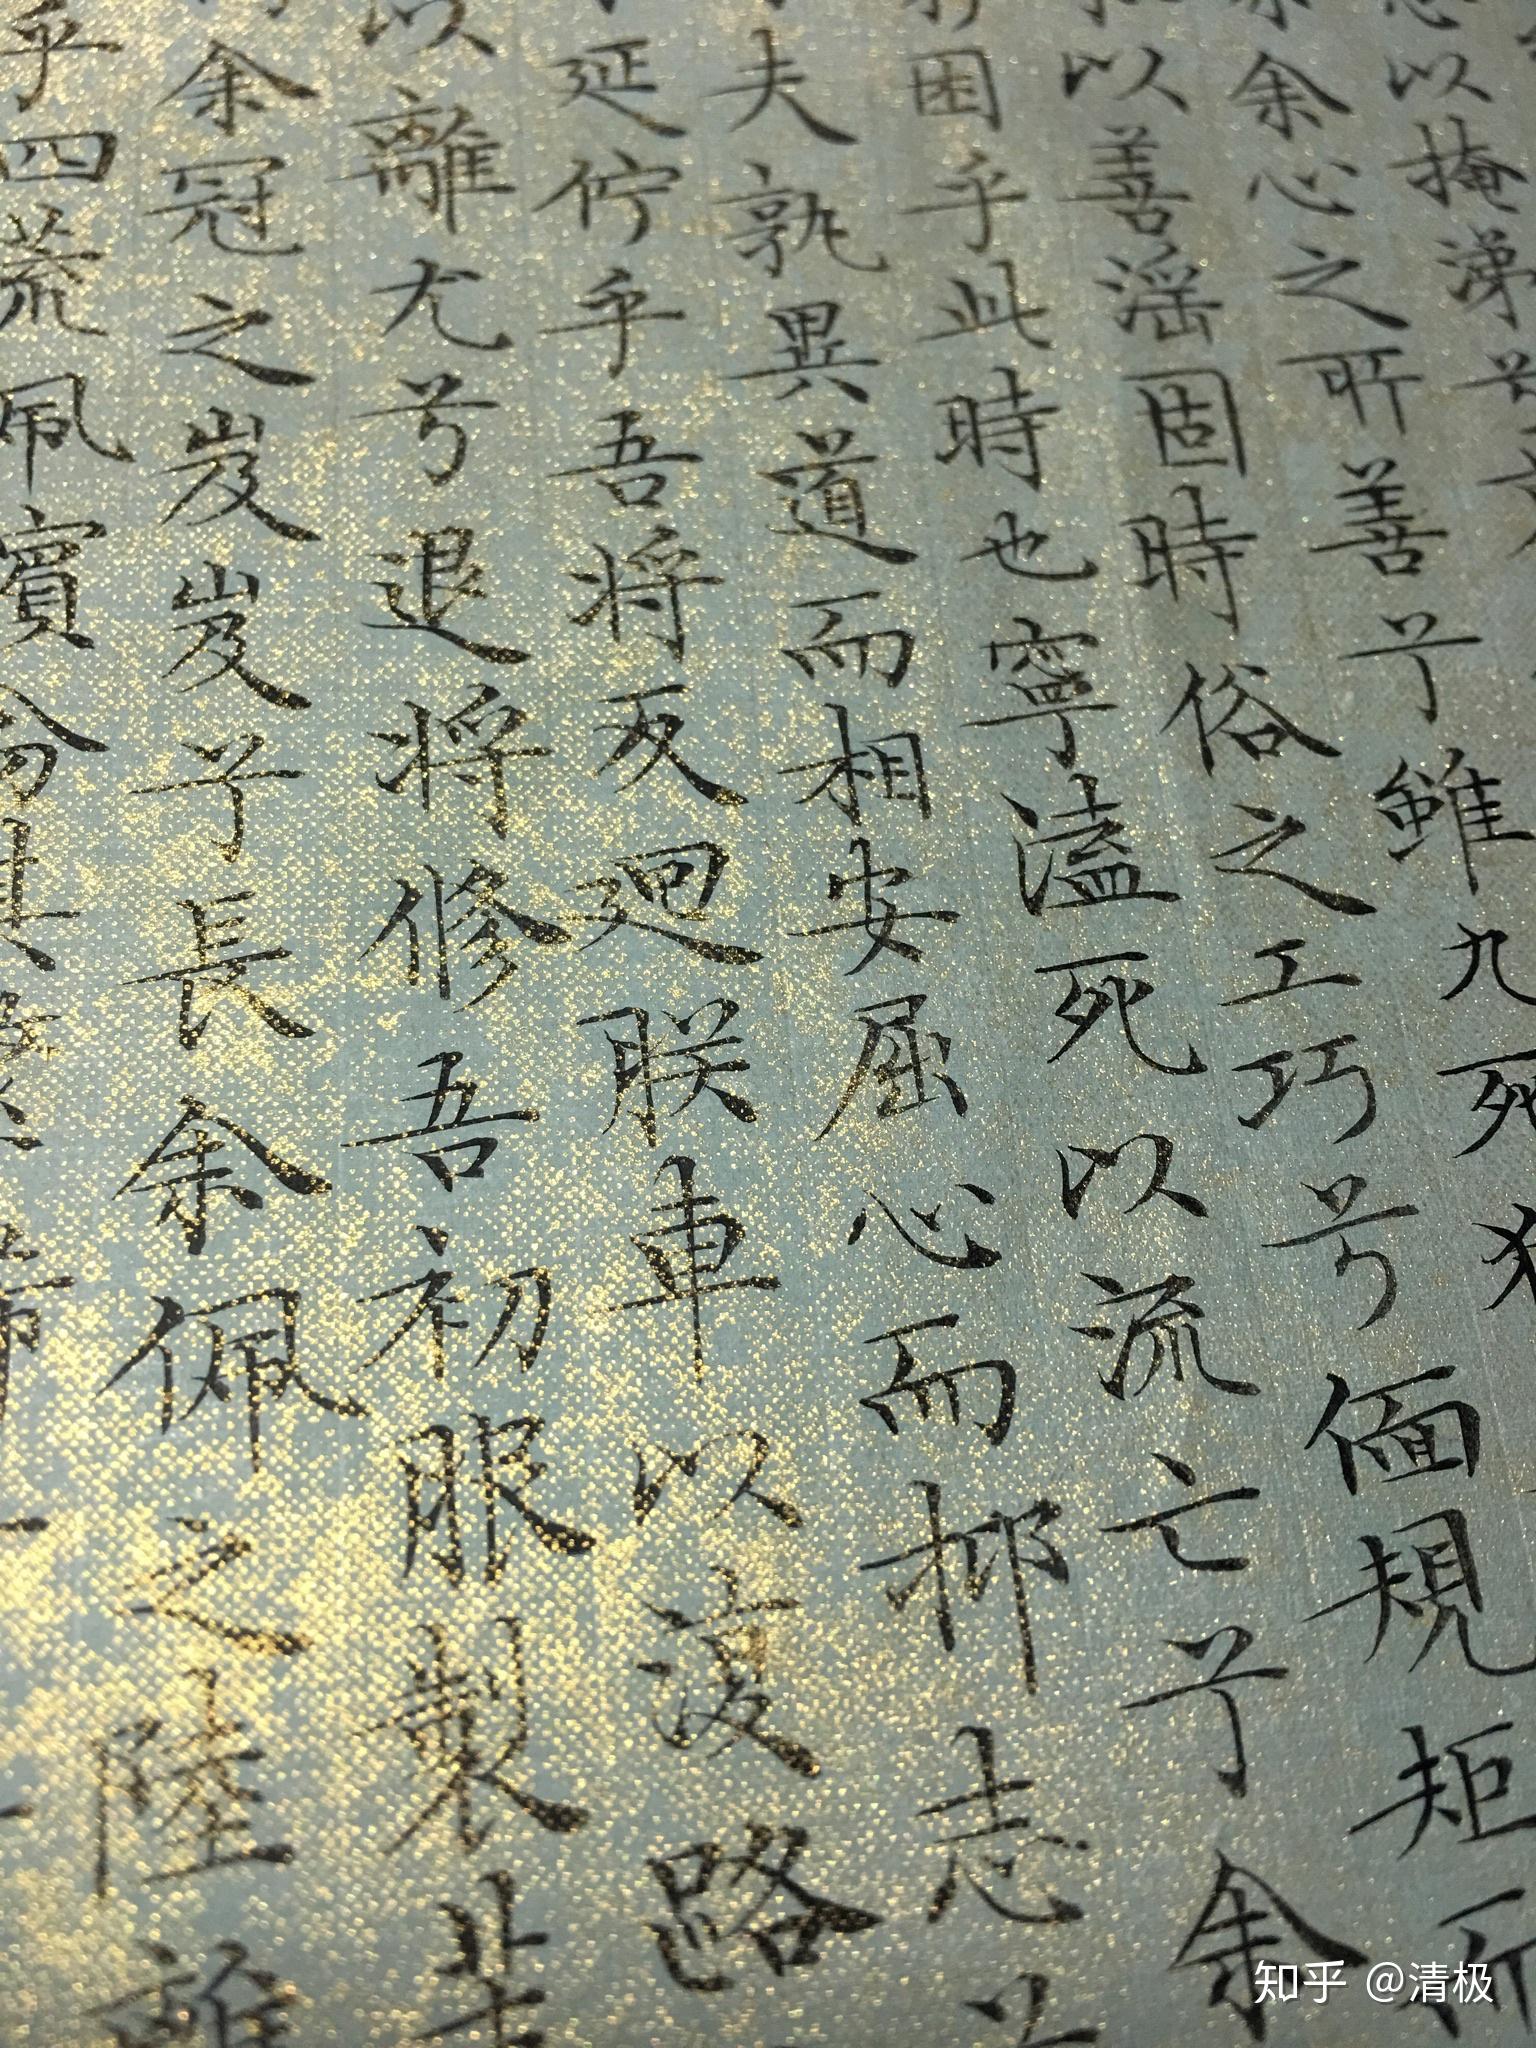 以掩涕
余心之所善兮雖九死猶
以善淫固時俗之工巧兮偭規矩
困乎此時也寧溘死以流亡兮余
夫孰異道而相安屈心而抑志
延佇乎吾將反迴朕車以復路
以離尤兮退將修吾初服製芰
余冠之岌岌兮長余佩之陸離
乎四荒佩繽
知乎 @清极